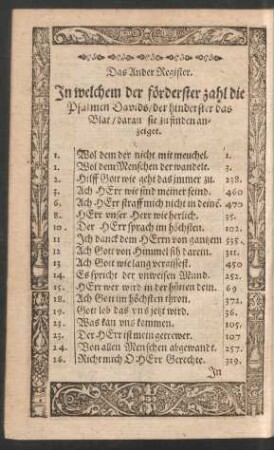 Das Ander Register.
In welchem der förderster zahl die
Psalmen Davids / der hinderster das
Blat / daran sie zu finden an-
zeiget.
1. Wol dem der nicht mit meuchel. 1.
1. Wol dem Menschen der wandelt. 3.
2. Hilff Gott wie geht das jmmer zu. 238.
3. Ach HErr wie sind meiner feind. 460
6. Ach HErr straff mich nicht in deinē. 470
8. HErr vnser Herr wie herlich. 35.
10. Der HErr sprach im höchsten. 102.
11 Ich danck dem HErrn von gantzem 555.
12 Ach Gott von Himmel sih darein. 311.
13 Ach Gott wie lang vergissest. 450
14. Es spricht der vnweisen Mund. 252.
15. HErr wer wird in der hütten dein. 69
18. Ach Gott im höchsten thron. 372.
19. Gott lob das vns jetzt wird. 36.
23. Was kan vns kommen. 105.
23. Der HErr ist mein getrewer. 107
24. Von allen Menschen abgewandt. 257.
26. Richt mich O HErr Gerechte. 319.
In